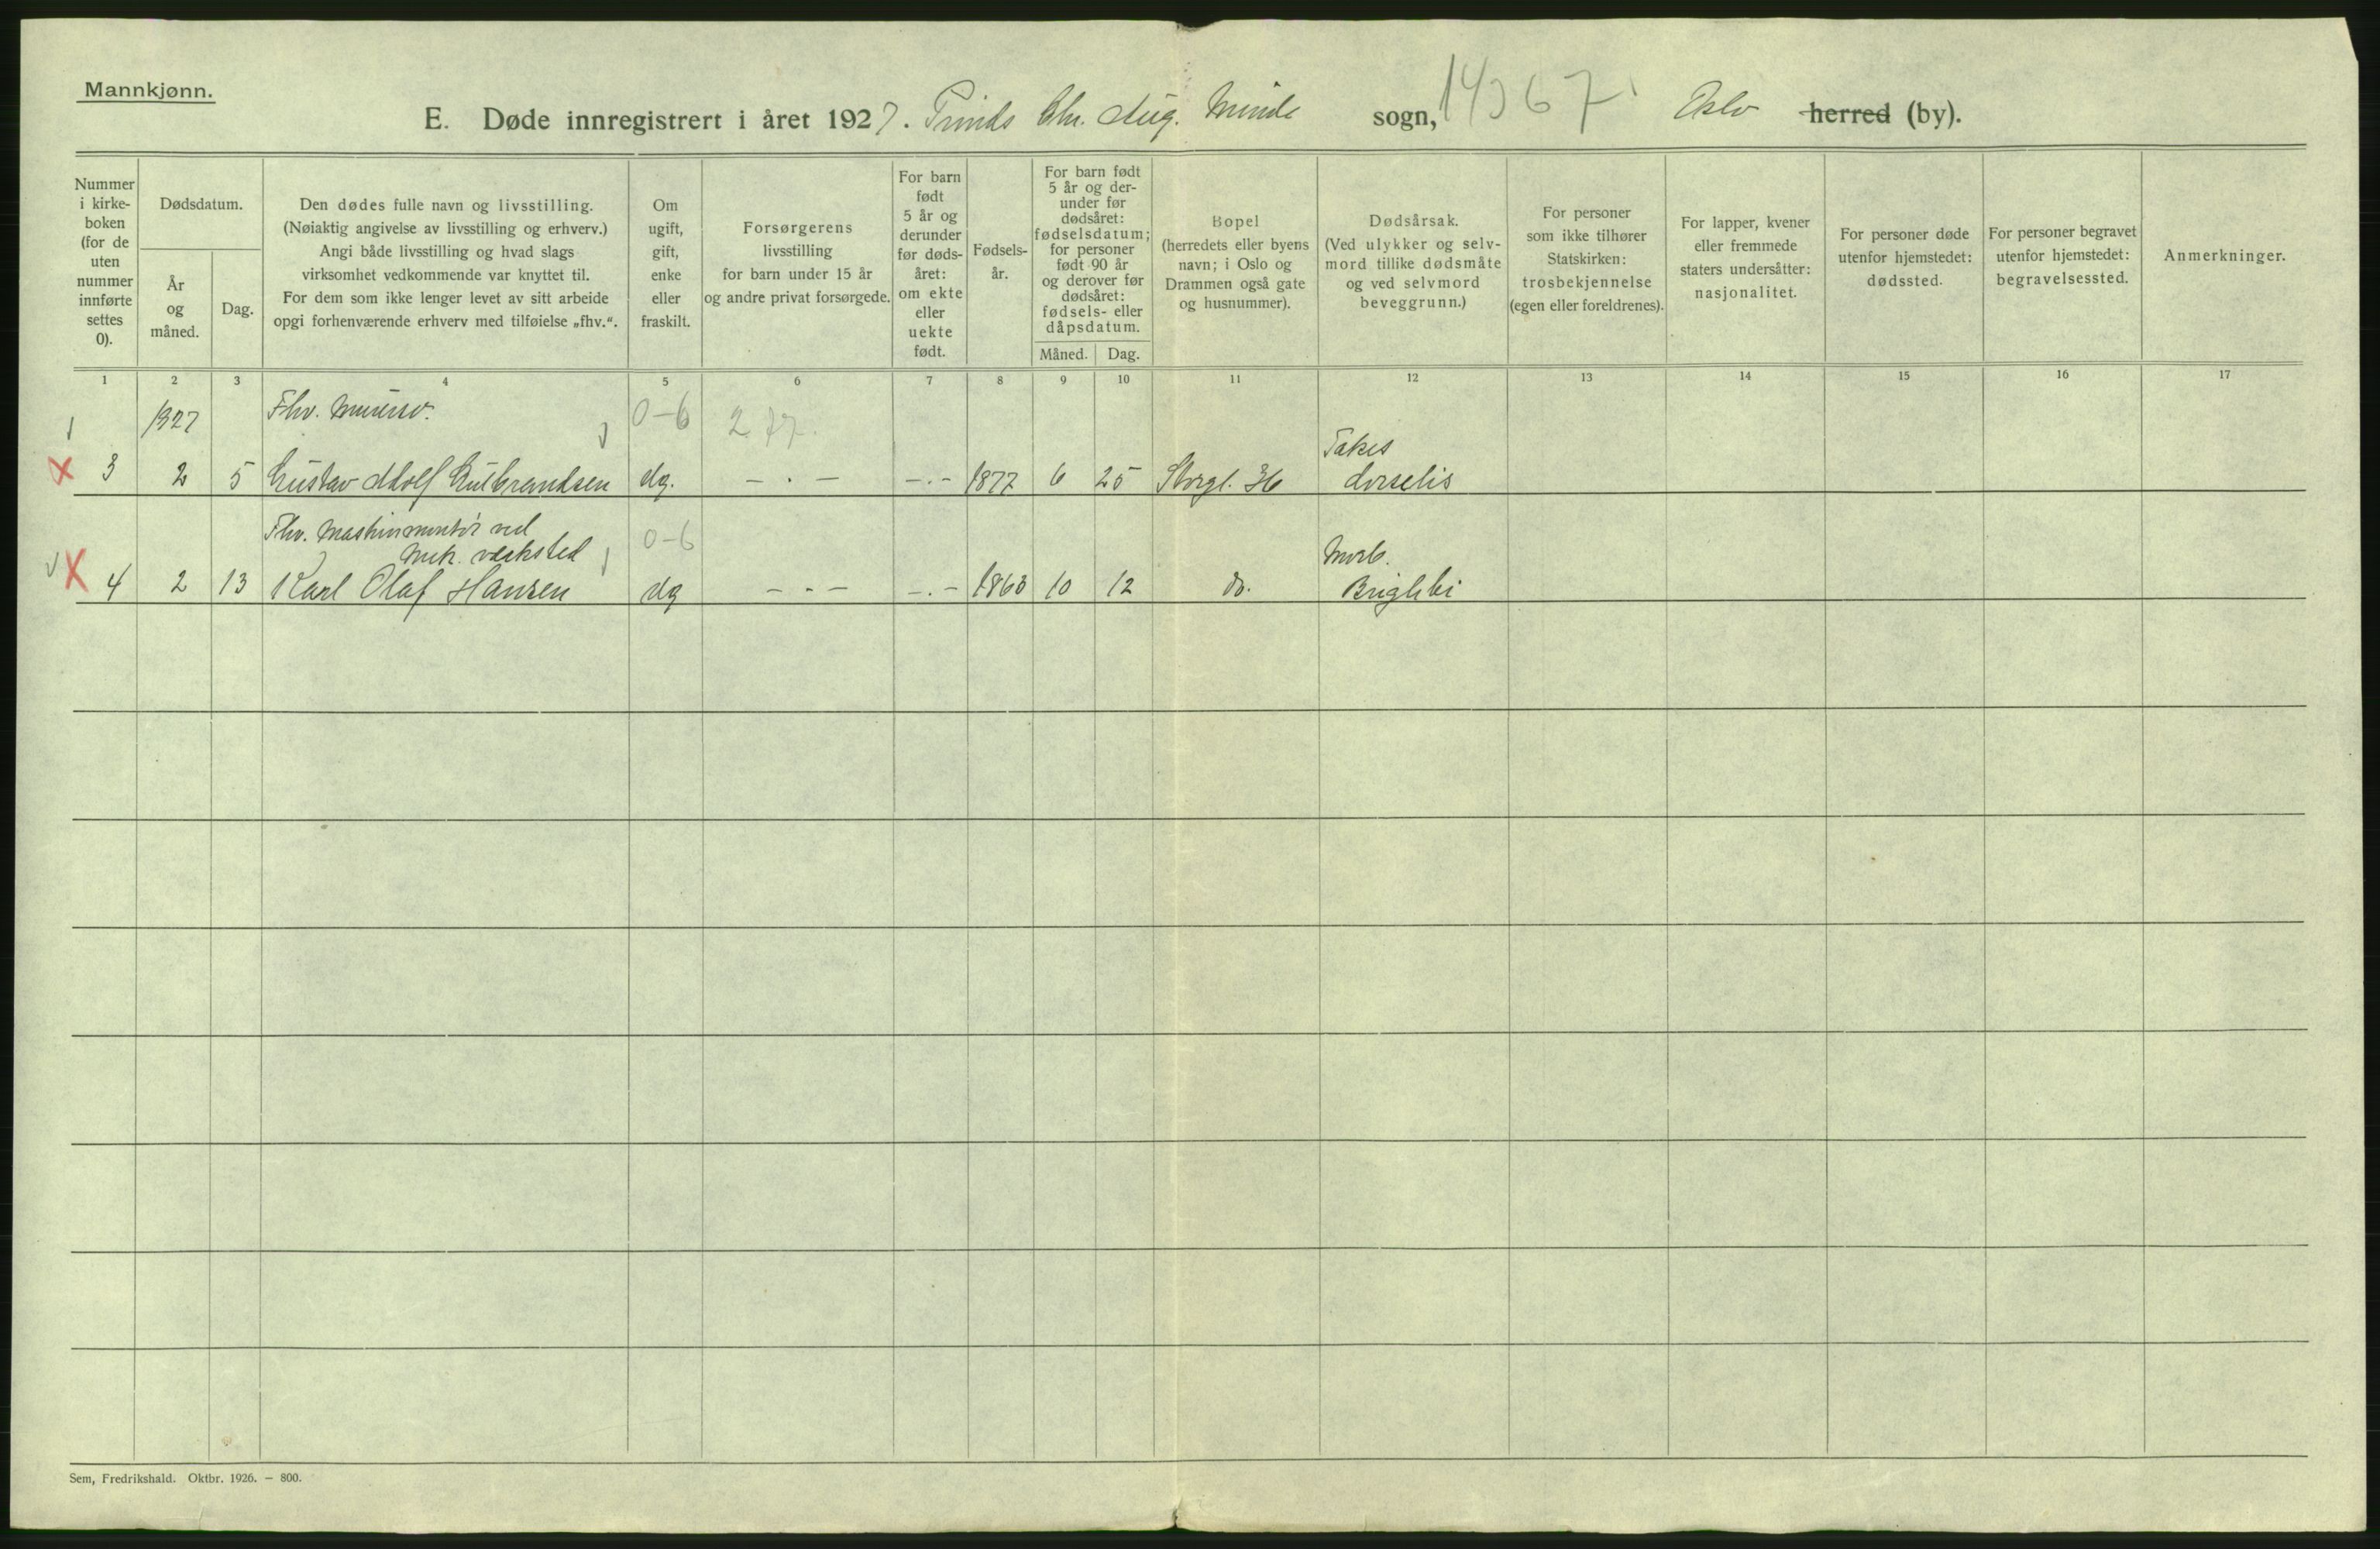 Mannkjønn.
E. Døde innregistrert i året 1927. Prinds Chr. Aug. Minde sogn, Oslo herred (by).
Nummer i kirke- boken (for de uten nummer innførte settes 0).
Dødsdatum.
År og måned.
Dag.
Den dødes fulle navn og livsstilling.
(Nøiaktig angivelse av livsstilling og erhverv.)
Angi både livsstilling og hvad slags
virksomhet vedkommende var knyttet til.
For dem som ikke lenger levet av sitt arbeide
opgi forhenværende erhverv med tilføielse „fhv.“.
Om ugift, gift, enke eller fraskilt.
Forsørgerens
livsstilling
for barn under 15 år
og andre privat forsørgede.
For barn født 5 år og derunder før døds- året: om ekte eller uekte født.
Fødsels- år.
For barn født 5 år og der- under før dødsåret: fødselsdatum; for personer født 90 år og derover før dødsåret: fødsels- eller dåpsdatum.
Måned.
Dag.
Bopel
(herredets eller byens
navn; i Oslo og
Drammen også gate
og husnummer).
Dødsårsak.
(Ved ulykker og selv-
mord tillike dødsmåte
og ved selvmord
beveggrunn.)
For personer
som ikke tilhører
Statskirken:
trosbekjennelse
(egen eller foreldrenes).
For lapper, kvener
eller fremmede
staters undersåtter:
nasjonalitet.
For personer døde
utenfor hjemstedet:
dødssted.
For personer begravet
utenfor hjemstedet:
begravelsessted.
Anmerkninger.
1 2 3 4 5 6 7 8 9 10 11 12 13 14 15 16 17
1927 Fhv. 0-6
Tabes
3 2 5 Gustav Adolf Gulbrandsen dg. - . - - . - 1877 6 25 Storgt. 36 dorselis
Fhv. Maskinmontør ved 0-6
Mek. værksted Morb.
4 2 13 Karl Olaf Hansen dg - . - - . - 1863 10 12 do. Brighti
Sem, Fredrikshald. Oktbr. 1926. – 800.